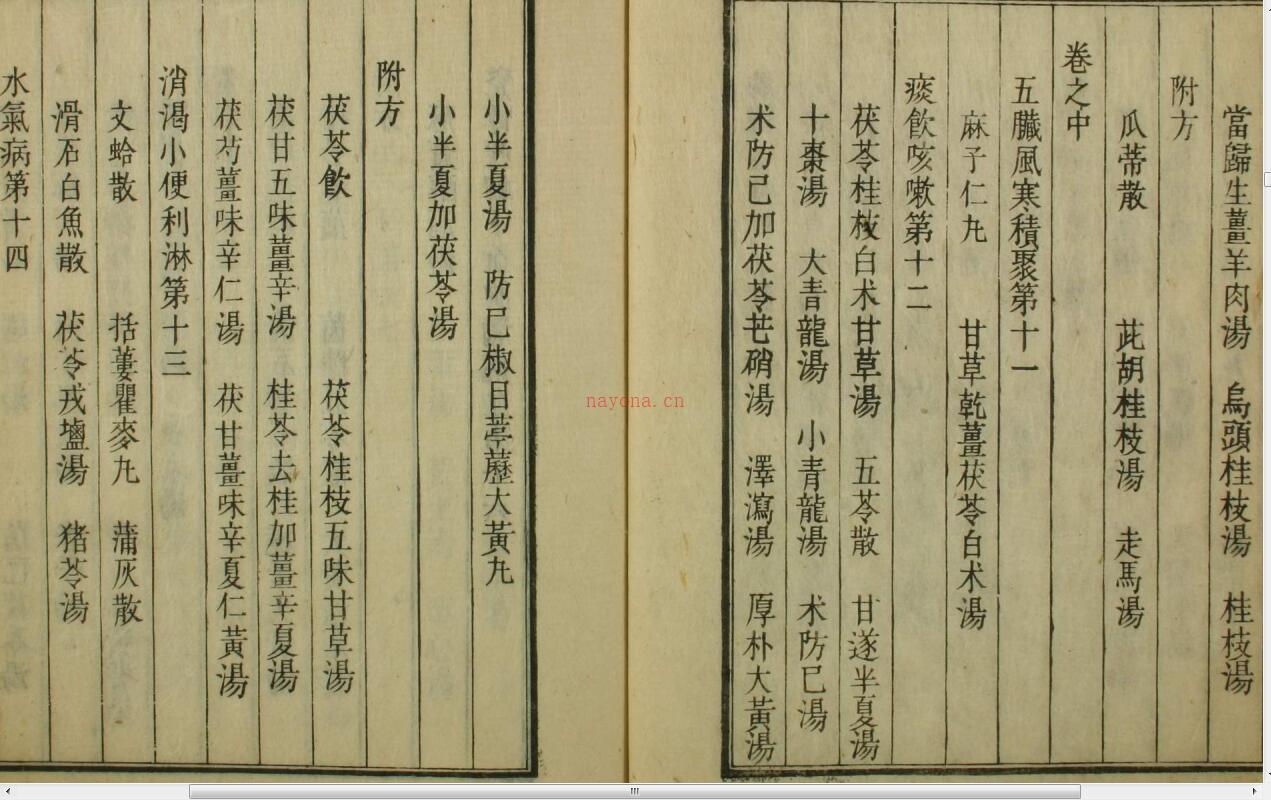 當歸生薑羊肉湯 烏頭桂枝湯 桂枝湯
附方
瓜蒂散 茈胡桂枝湯 走馬湯
卷之中
五臟風寒積聚第十一
麻子仁九 甘草乾薑茯苓白术湯
痰飲咳嗽第十二
茯苓桂枝白术甘草湯 五苓散 甘遂半夏湯
十棗湯 大青龍湯 小青龍湯 术防巳湯
术防巳加茯苓芒硝湯 澤瀉湯 厚朴大黃湯
小半夏湯 防巳椒目葶藶大黃九
小半夏加茯苓湯
附方
茯苓飲 茯苓桂枝五味甘草湯
茯甘五味薑辛湯 桂苓去桂加薑辛夏湯
茯芍薑味辛仁湯 茯甘薑味辛夏仁黃湯
消渴小便利淋第十三
文蛤散 括蔞瞿麥九 蒲灰散
滑石白魚散 茯苓戎塩湯 猪苓湯
水氣病第十四
nayona.cn